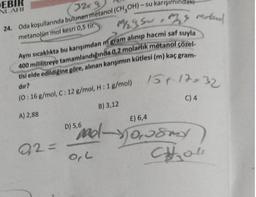 24. Oda koşullarında bulunan metanol (CH₃OH) – su karışımındaki
metanolün mol kesri 0,5 tir.
Aynı sıcaklıkta bu karışımdan m gram alınıp hacmi saf suyla
400 mililitreye tamamlandığında 0,2 molarlık metanol çözel-
tisi elde edildiğine göre, alınan karışımın kütlesi (m) kaç gram-
dır?
(O : 16 g/mol, C : 12 g/mol, H : 1 g/mol)
A) 2,88 B) 3,12 C) 4
D) 5,6 E) 6,4
0,2 = mol 0,08 mol
0,4